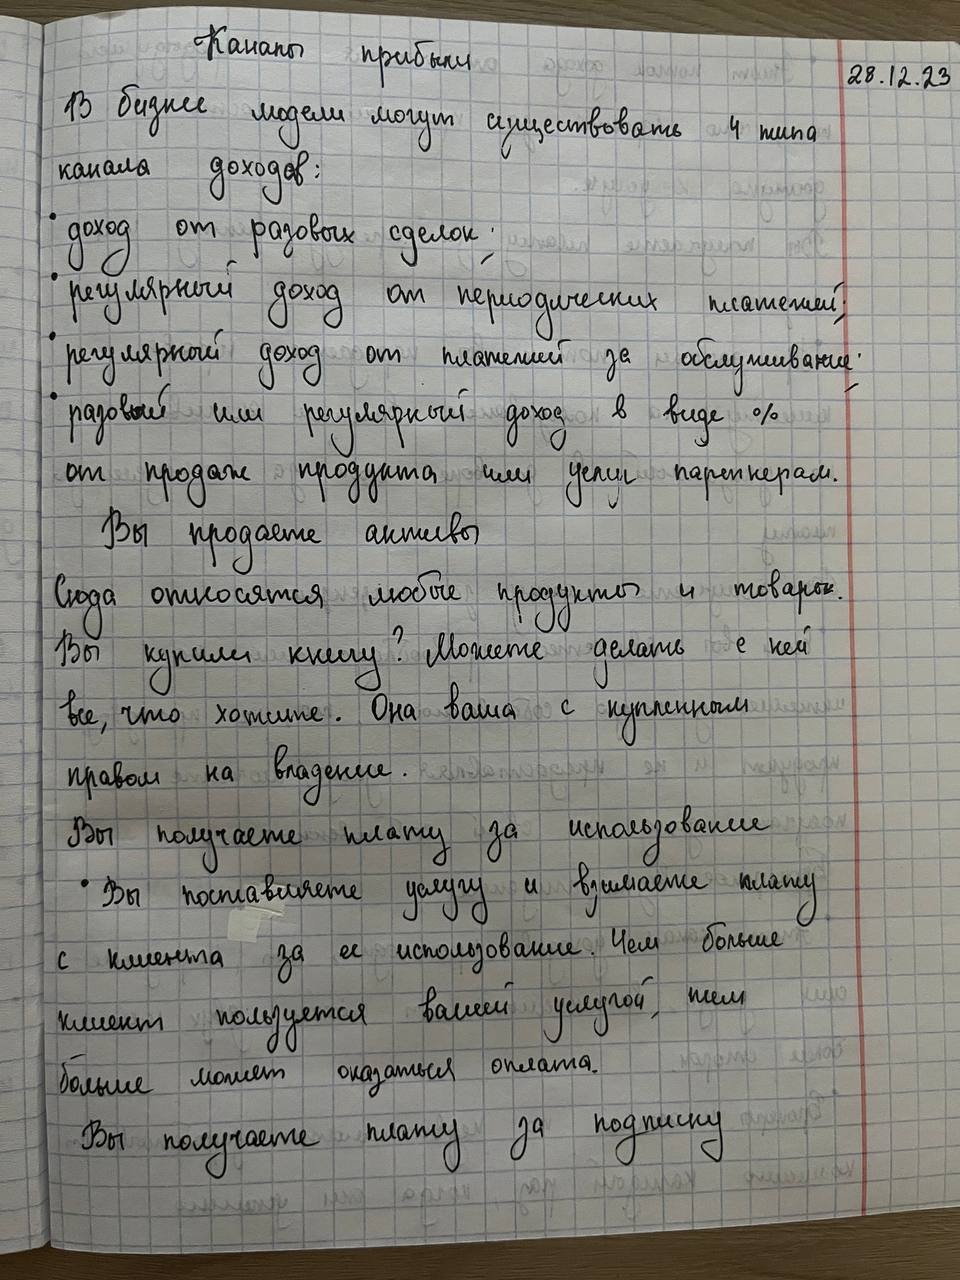 Каналы прибыли
28.12.23
В бизнес модели могут существовать 4 типа
канала доходов:
• доход от разовых сделок;
• регулярный доход от периодических платежей;
• регулярный доход от платежей за обслуживание;
• разовый или регулярный доход в виде %
от продаж продукта или услуг партнерам.
Вы продаете активы
Сюда относятся любые продукты и товары.
Вы купили книгу? Можете делать с ней
все, что хотите. Она ваша с купленным
правом на владение.
Вы получаете плату за использование
• Вы поставляете услугу и взимаете плату
с клиента за ее использование. Чем больше
клиент пользуется вашей услугой, тем
больше может оказаться оплата.
Вы получаете плату за подписку